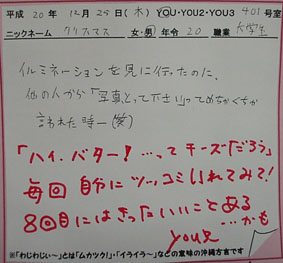 平成 20年 12月 25日(木) YOU・YOU2・YOU3 401号室
ニックネーム クリスマス 女・男 年令 20 職業 大学生
イルミネーションを見に行ったのに、
他の人から「写真とって下さい」ってめちゃくちゃ
言われた時ー(笑)
「ハイ、バター!…ってチーズだろう」
毎回 自分にツッコミいれてみて!
8回目にはきっといいことある
…かも
you兄
※「わじわじぃ~」とは「ムカツク!」・「イライラ~」などの意味の沖縄方言です